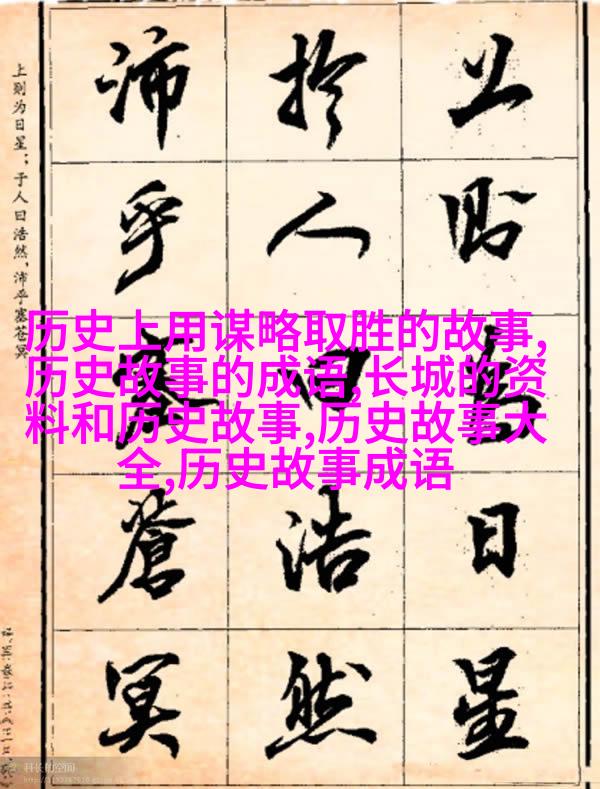 上则为日星
於人曰浩然
沛乎塞蒼冥
上则为日星；于人曰浩然，沛乎塞苍冥
历史上用谋略取胜的故事,
历史故事的成语,长城的资
料和历史故事,历史故事大
全,历史故事成语
科长的空间